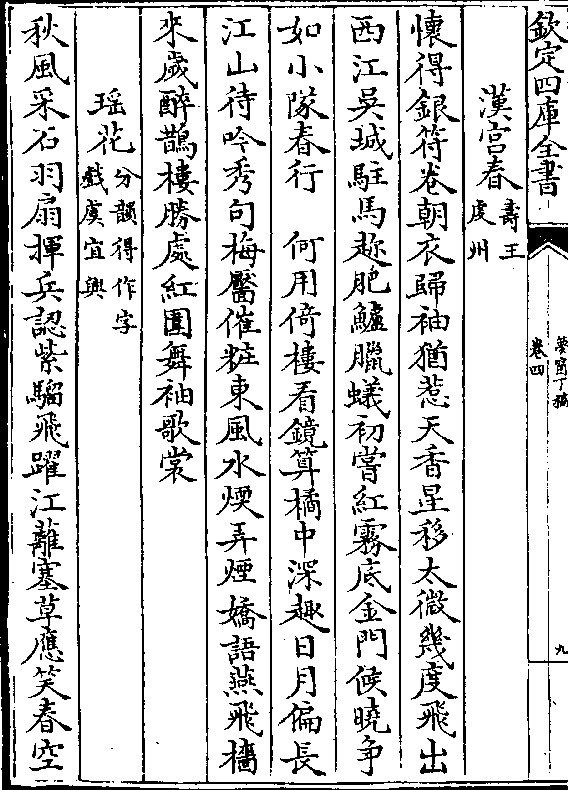 欽定四庫全書
夢窗丁稿
卷四
九
漢宮春
壽王
虔州
懷得銀符卷朝衣歸袖猶惹天香星移太微幾度飛出
西江吳城駐馬趂肥鱸臘蟻初嘗紅霧底金門候曉争
如小隊春行　何用倚樓看鏡算橘中深趣日月偏長
江山待吟秀句梅靨催粧東風水煖弄煙嬌語燕飛檣
來歲醉鵲樓勝處紅圍舞袖歌裳
瑶花
分韻得作字
戲虞宜興
秋風采石羽扇揮兵認紫騮飛躍江蘺塞草應笑春空